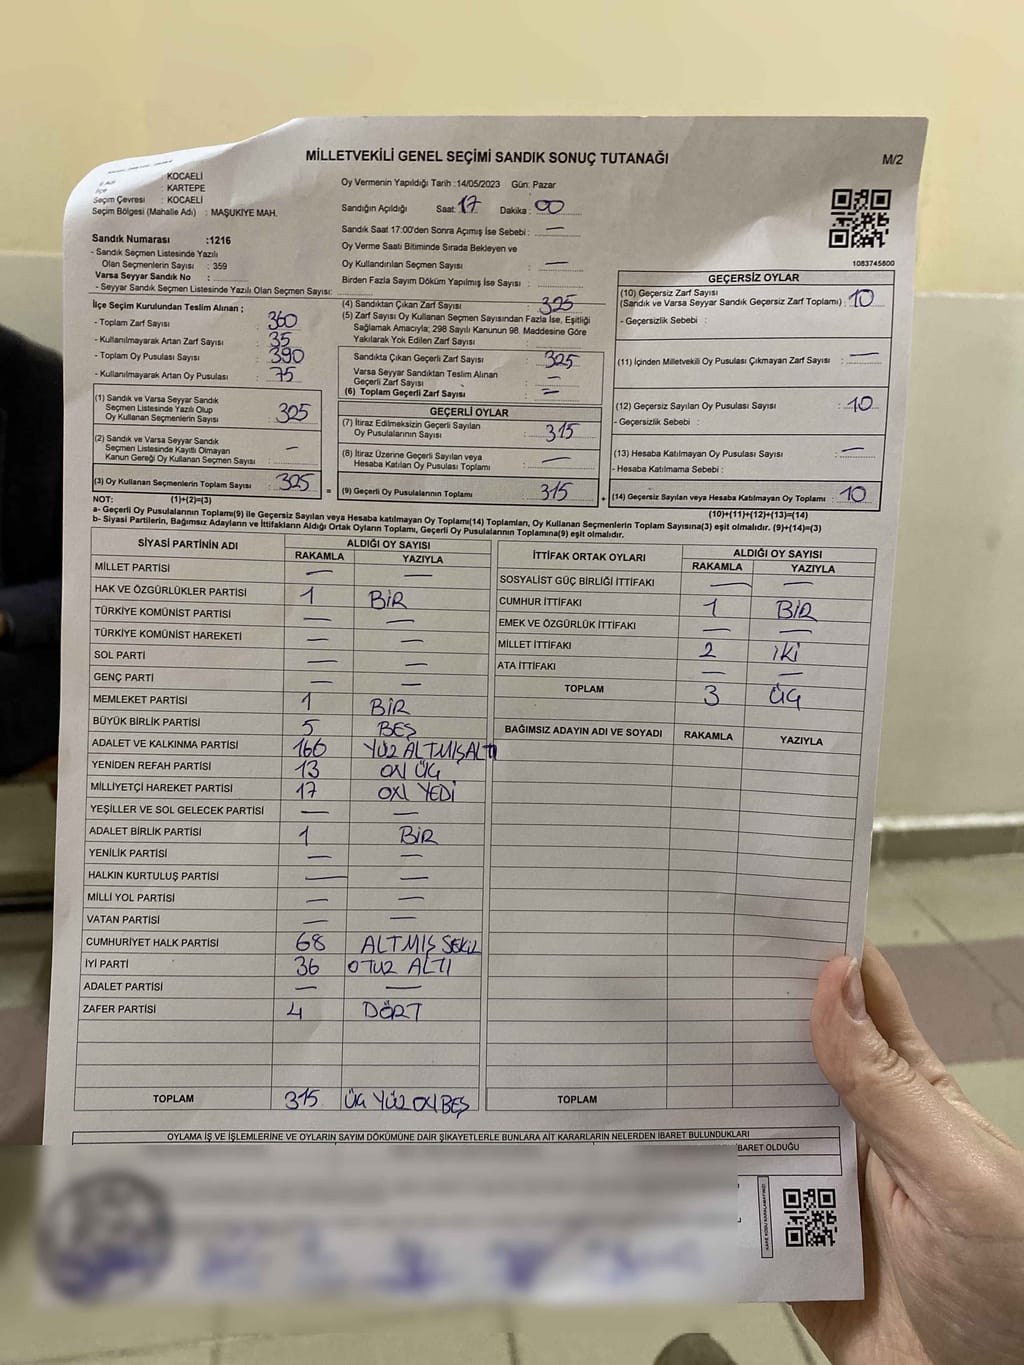 MİLLETVEKİLİ GENEL SEÇİMİ SANDIK SONUÇ TUTANAĞI
M/2
İlçe : KOCAELİ
: KARTEPE
Seçim Çevresi : KOCAELİ
Seçim Bölgesi (Mahalle Adı) : MAŞUKİYE MAH.
Oy Vermenin Yapıldığı Tarih :14/05/2023 Gün: Pazar
Sandığın Açıldığı Saat: 17 Dakika : 00
Sandık Saat 17:00'den Sonra Açımış İse Sebebi : —
Oy Verme Saati Bitiminde Sırada Bekleyen ve
Oy Kullandırılan Seçmen Sayısı : —
Birden Fazla Sayım Döküm Yapılmış İse Sayısı :
Sandık Numarası :1216
- Sandık Seçmen Listesinde Yazılı
Olan Seçmenlerin Sayısı : 359
Varsa Seyyar Sandık No :
- Seyyar Sandık Seçmen Listesinde Yazılı Olan Seçmen Sayısı:
İlçe Seçim Kurulundan Teslim Alınan ;
- Toplam Zarf Sayısı : 360
- Kullanılmayarak Artan Zarf Sayısı : 35
- Toplam Oy Pusulası Sayısı : 390
- Kullanılmayarak Artan Oy Pusulası : 75
(1) Sandık ve Varsa Seyyar Sandık
Seçmen Listesinde Yazılı Olup
Oy Kullanan Seçmenlerin Sayısı : 325
(2) Sandık ve Varsa Seyyar Sandık
Seçmen Listesinde Kayıtlı Olmayan
Kanun Gereği Oy Kullanan Seçmen Sayısı : —
(3) Oy Kullanan Seçmenlerin Toplam Sayısı : 325
(4) Sandıktan Çıkan Zarf Sayısı : 325
(5) Zarf Sayısı Oy Kullanan Seçmen Sayısından Fazla İse, Eşitliği
Sağlamak Amacıyla; 298 Sayılı Kanunun 98. Maddesine Göre
Yakılarak Yok Edilen Zarf Sayısı :
Sandıkta Çıkan Geçerli Zarf Sayısı : 325
Varsa Seyyar Sandıktan Teslim Alınan
Geçerli Zarf Sayısı : —
(6) Toplam Geçerli Zarf Sayısı :
GEÇERLİ OYLAR
(7) İtiraz Edilmeksizin Geçerli Sayılan
Oy Pusulalarının Sayısı : 315
(8) İtiraz Üzerine Geçerli Sayılan veya
Hesaba Katılan Oy Pusulası Toplamı : —
= (9) Geçerli Oy Pusulalarının Toplamı : 315
1083745800
GEÇERSİZ OYLAR
(10) Geçersiz Zarf Sayısı
(Sandık ve Varsa Seyyar Sandık Geçersiz Zarf Toplamı) : 10
- Geçersizlik Sebebi :
(11) İçinden Milletvekili Oy Pusulası Çıkmayan Zarf Sayısı : —
(12) Geçersiz Sayılan Oy Pusulası Sayısı : 10
- Geçersizlik Sebebi :
(13) Hesaba Katılmayan Oy Pusulası Sayısı : —
- Hesaba Katılmama Sebebi :
+ (14) Geçersiz Sayılan veya Hesaba Katılmayan Oy Toplamı : 10
NOT: (1)+(2)=(3)
(10)+(11)+(12)+(13)=(14)
a- Geçerli Oy Pusulalarının Toplamı(9) ile Geçersiz Sayılan veya Hesaba katılmayan Oy Toplamı(14) Toplamları, Oy Kullanan Seçmenlerin Toplam Sayısına(3) eşit olmalıdır. (9)+(14)=(3)
b- Siyasi Partilerin, Bağımsız Adayların ve İttifakların Aldığı Ortak Oyların Toplamı, Geçerli Oy Pusulalarının Toplamına(9) eşit olmalıdır.
SİYASİ PARTİNİN ADI ALDIĞI OY SAYISI
RAKAMLA YAZIYLA
MİLLET PARTİSİ — —
HAK VE ÖZGÜRLÜKLER PARTİSİ 1 BİR
TÜRKİYE KOMÜNİST PARTİSİ — —
TÜRKİYE KOMÜNİST HAREKETİ — —
SOL PARTİ — —
GENÇ PARTİ — —
MEMLEKET PARTİSİ 1 BİR
BÜYÜK BİRLİK PARTİSİ 5 BEŞ
ADALET VE KALKINMA PARTİSİ 166 YÜZ ALTMIŞALTI
YENİDEN REFAH PARTİSİ 13 ON ÜÇ
MİLLİYETÇİ HAREKET PARTİSİ 17 ON YEDİ
YEŞİLLER VE SOL GELECEK PARTİSİ — —
ADALET BİRLİK PARTİSİ 1 BİR
YENİLİK PARTİSİ — —
HALKIN KURTULUŞ PARTİSİ — —
MİLLİ YOL PARTİSİ — —
VATAN PARTİSİ — —
CUMHURİYET HALK PARTİSİ 68 ALTMIŞ SEKİZ
İYİ PARTİ 36 OTUZ ALTI
ADALET PARTİSİ — —
ZAFER PARTİSİ 4 DÖRT
TOPLAM 315 ÜÇ YÜZ ON BEŞ
İTTİFAK ORTAK OYLARI ALDIĞI OY SAYISI
RAKAMLA YAZIYLA
SOSYALİST GÜÇ BİRLİĞİ İTTİFAKI — —
CUMHUR İTTİFAKI 1 BİR
EMEK VE ÖZGÜRLÜK İTTİFAKI — —
MİLLET İTTİFAKI 2 İKİ
ATA İTTİFAKI — —
TOPLAM 3 ÜÇ
BAĞIMSIZ ADAYIN ADI VE SOYADI RAKAMLA YAZIYLA
TOPLAM
OYLAMA İŞ VE İŞLEMLERİNE VE OYLARIN SAYIM DÖKÜMÜNE DAİR ŞİKAYETLERLE BUNLARA AİT KARARLARIN NELERDEN İBARET BULUNDUKLARI
İBARET OLDUĞU